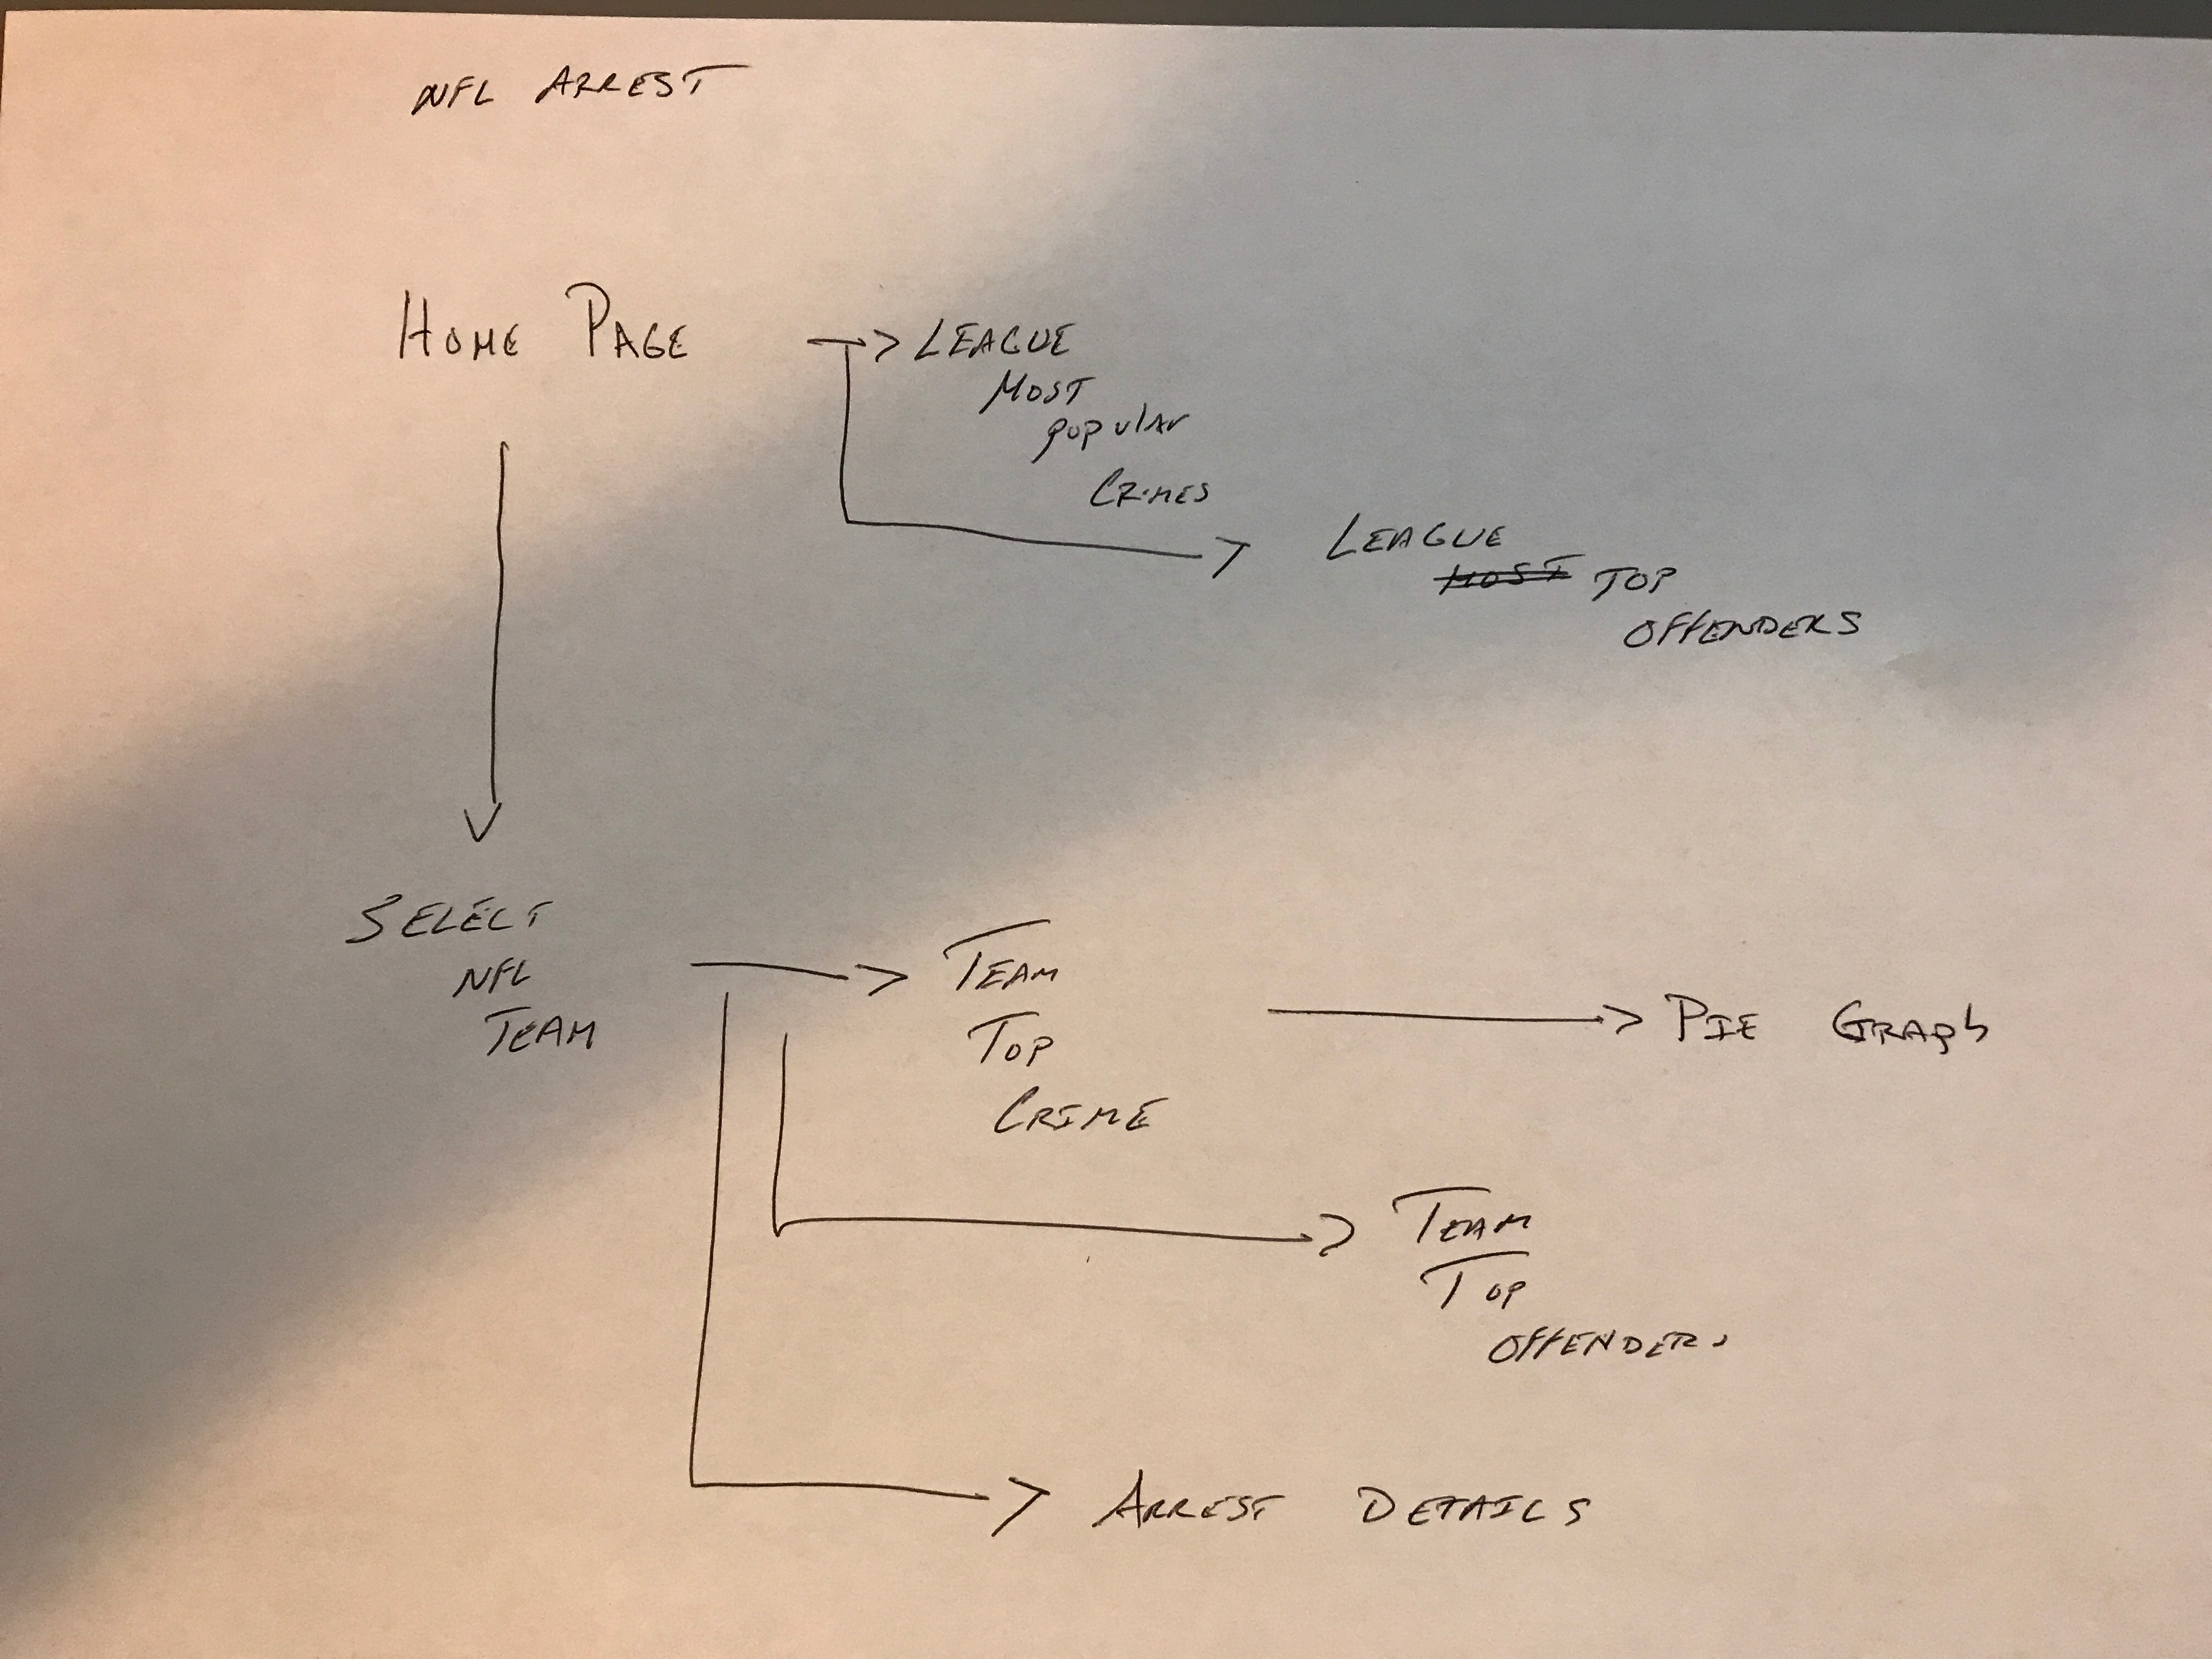 NFL ARREST
HOME PAGE
LEAGUE
MOST
popular
CRIMES
LEAGUE
MOST TOP
OFFENDERS
SELECT
NFL
TEAM
TEAM
TOP
CRIME
PIE GRAPh
TEAM
TOP
OFFENDERS
ARREST DETAILS